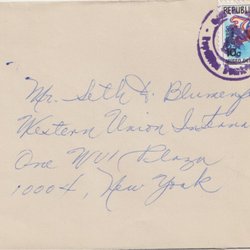 REPUBLI
10c
Mr. Seth H. Blumenf
Western Union Interna
One WUI Plaza
10004, New York